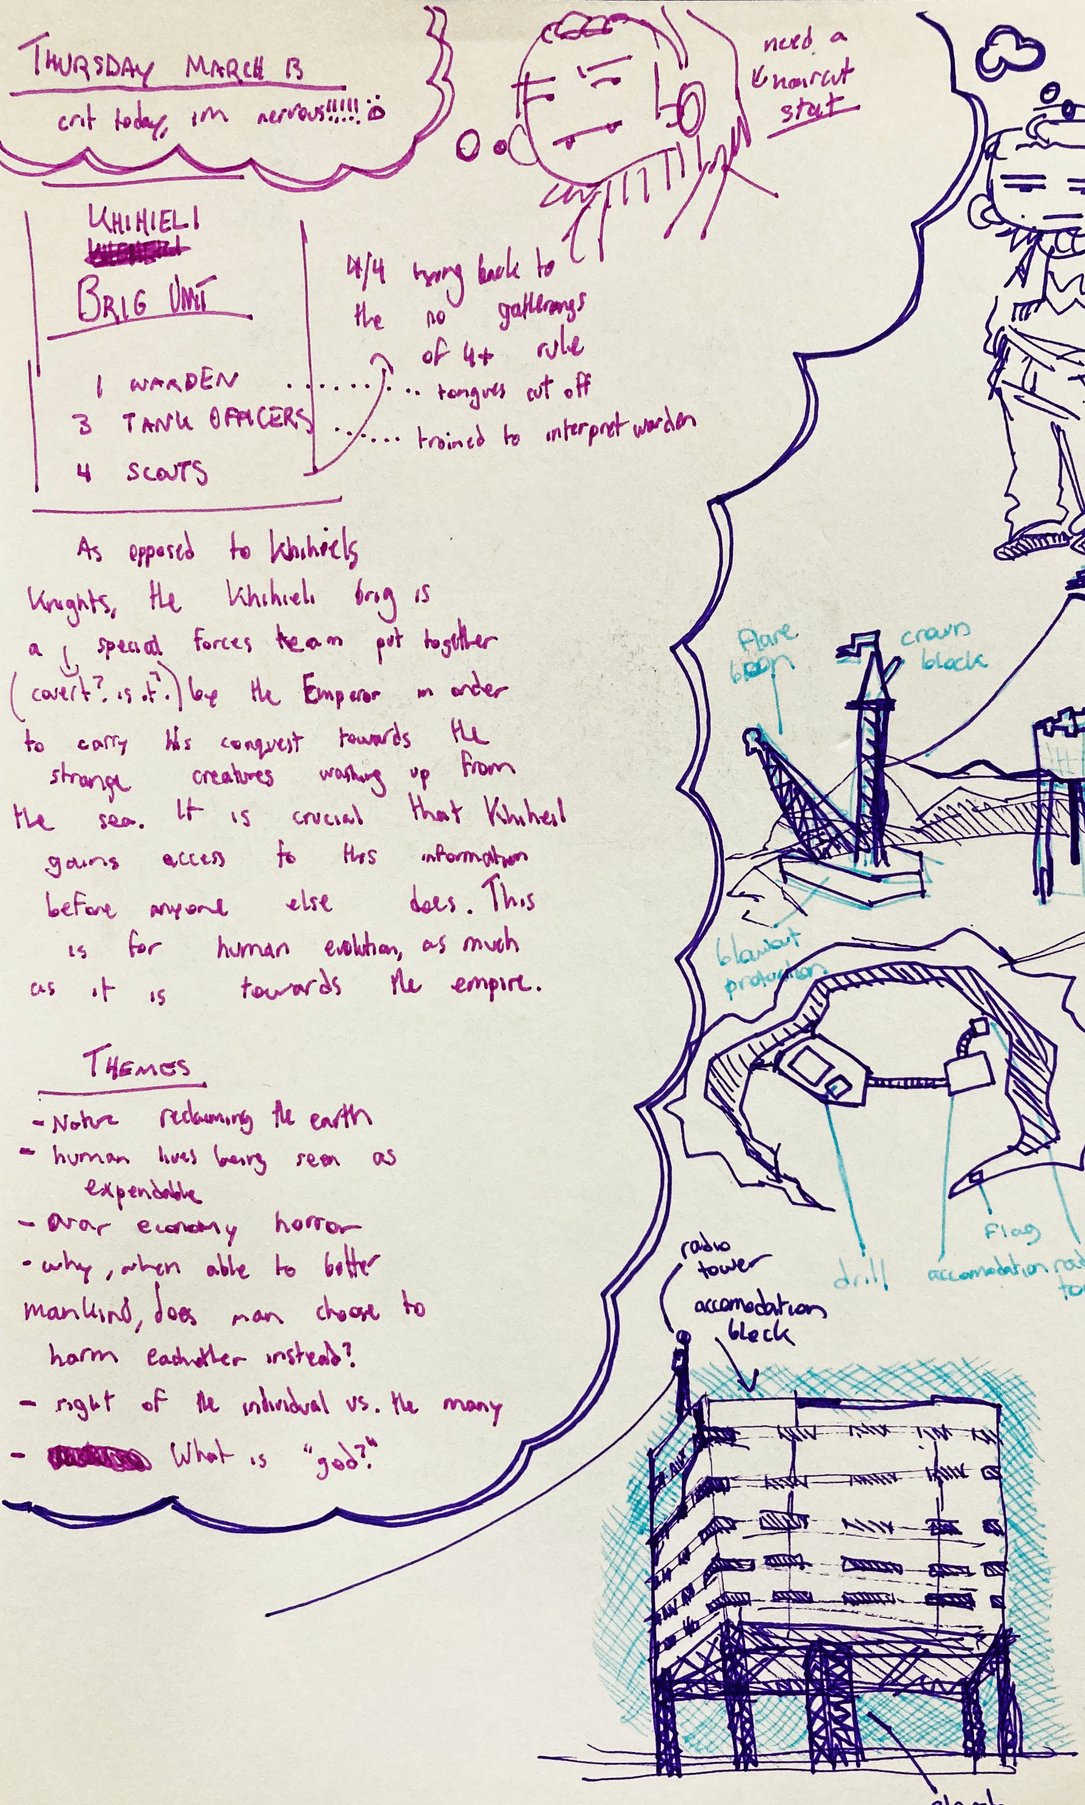 THURSDAY MARCH 13
crit today, im nervous!!!!!
need a
haircut
stat
KHIHIELI
BRIG UNIT
1 WARDEN
3 TANK OFFICERS
4 SCOUTS
4/4 tying back to
the no gatherings
of 4+ rule
tongues cut off
trained to interpret warden
As opposed to Khihiels
Knights, the Khihieli brig is
a special forces team put together
(covert? is it?) by the Emperor in order
to carry his conquest towards the
strange creatures washing up from
the sea. It is crucial that Khiheil
gains access to this information
before anyone else does. This
is for human evolution, as much
as it is towards the empire.
THEMES
- Nature reclaiming the earth
- human lives being seen as
expendable
- war economy horror
- why, when able to better
mankind, does man choose to
harm eachother instead?
- right of the individual vs. the many
- What is "god?"
flare
boom
crown
block
blowout
protection
drill
flag
accomodation
radio
tower
accomodation
block